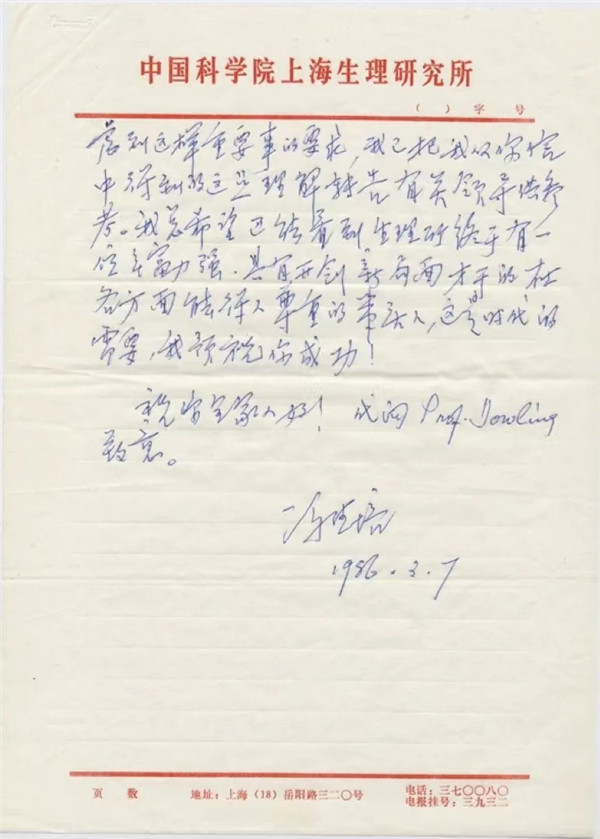 中国科学院上海生理研究所
（ ）字 号
虑到这样重要事的要求，我已把我从你信
中得到的这些理解转告有关领导供参
考。我总希望还能看到生理所终于有一
位年富力强、具有开创新局面才干的在
各方面能得人尊重的带头人，这是时代的
需要，我预祝你成功！
祝你全家人好！ 代问 Prof. Dowling
致意。
冯德培
1986.3.7
页 数
地址：上海（18）岳阳路三二〇号
电话：三七〇〇八〇
电报挂号：三九三二